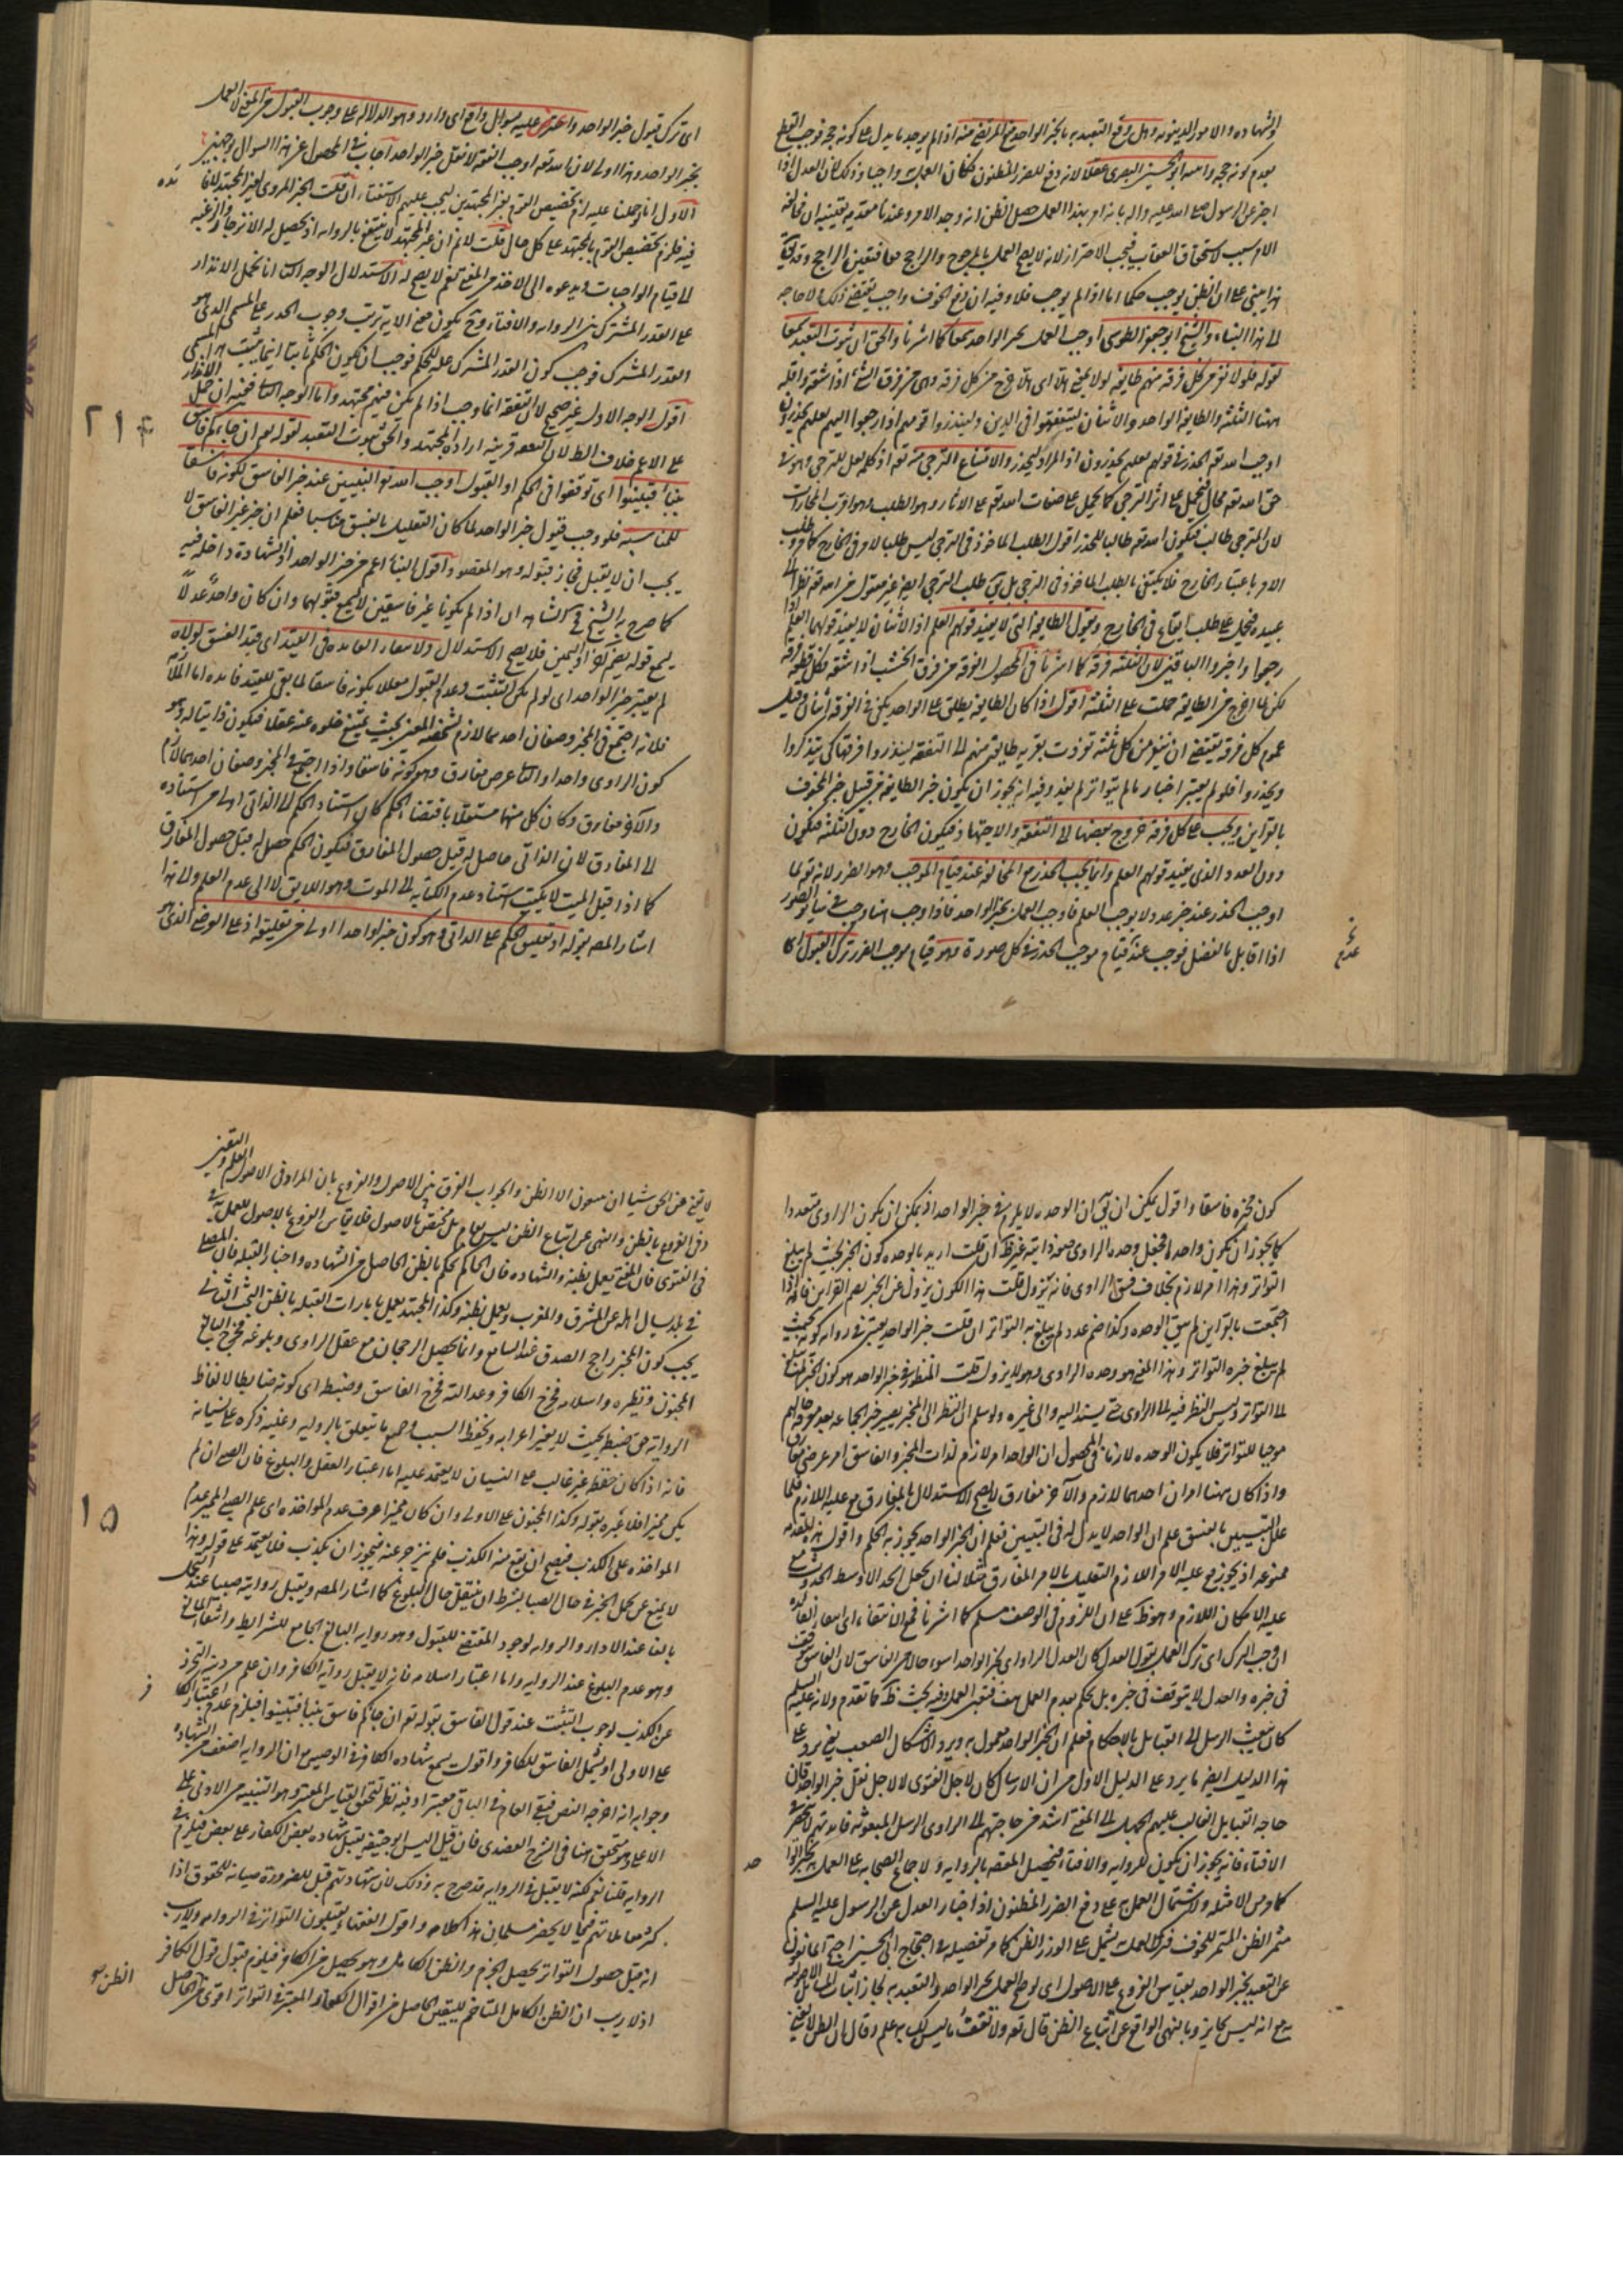 والشهاده والامور الدنيويه وهل وقع التعبد به بالخبر الواحد منع المرتضى منه اذ لم يوجد ما يدل على كونه حجه فوجب القطع
بعدم كونه حجه واثبته ابو الحسين البصرى عقلا لانه دفع للضرر المظنون فكان العمل به واجبا وذلك لان العدل اذا
اخبر عن الرسول صلى الله عليه واله بانه امر بهذا العمل حصل الظن انه وجد الامر وعندنا مقدمه يقينيه ان مخالفه
الامر سبب لاستحقاق العقاب فيجب الاحتراز لانه لا يصح العمل بالمرجوح والراجح معا فتعين الراجح
هذا مبنى على ان الظن يوجب حكما اما اذا لم يوجب فلا وفيه ان دفع الخوف واجب يقتضى ذلك ولا حاجه
الى هذا البناء والشيخ ابو جعفر الطوسى اوجب العمل بخبر الواحد سمعا كما اشرنا والحق ان ثبوت التعبد سمعا
لقوله فلولا نفر من كل فرقه منهم طايفه لولا بمعنى هلا اى هلا خرج من كل فرقه وهى من فرق الشئ اذا شقه واقله
ههنا الثلثه والطايفه الواحد والاثنان ليتفقهوا فى الدين ولينذروا قومهم اذا رجعوا اليهم لعلهم يحذرون
اوجب الله تعه الحذر فى قوله لعلهم يحذرون اذ المراد ليحذروا لامتناع الترجى منه تعه اذ كلمه لعل للترجى وهو فى
حق الله تعه محال فيحمل على اثر الترجى كما يحمل على صفات الله تعه على الاثار وهو الطلب وهو اقرب المجازات
لان المترجى طالب فيكون الله تعه طالبا للحذر اقول الطلب الماخوذ فى الترجى ليس طلبا لامر فى الخارج كما هو طلب
الامر باعتبار الخارج فلا يكتفى بالطلب الماخوذ فى الترجى بل طلب الترجى ايضا غير معقول من الله تعه نظرا الى
عبيده فيحمل على طلب ايقاع فى الخارج وبقول الطايفه التى لا يفيد قولهم العلم اذ الاثنان لا يفيد قولهما العلم اذا
رجعوا واخبروا الباقين لان الثلثه فرقه كما اشرنا فى المحصول الفرقه من فرق الخشب اذا شقه فكل قطعه فرقه
لكن لما خرج من الطايفه حملت على الثلثه اقول اذا كان الطايفه يطلق على الواحد يكفى فى الفرقه اثنان وقيل
عموم كل فرقه يقتضى ان ينفر من كل ثلثه تفرقت بقريه طايفه منهم الى التفقه لينذروا فرقتها كى يتذكروا
ويحذروا فلو لم يعتبر اخبار ما لم يتواتر لم يفد وفيه انه يجوز ان يكون خبر الطايفه من قبيل خبر المحفوف
بالقراين ويجب على كل فرقه خروج بعضها الى التفقه والاجتهاد فيكون الخارج دون الثلثه فيكون
دون العدد الذى يفيد قولهم العلم وانما يجب الحذر مع المخالفه عند قيام الموجب وهو الضرر لانه تعه لما
اوجب الحذر عند خبر عدد لا يوجب العلم فاوجب العمل بخبر الواحد فاذا وجب هنا وجب فى سائر الصور
اذ لا قايل بالفصل فوجب عند قيام موجب الحذر فى كل صورة وهو قيام موجب الضرر ترك القبول
عدم
اى ترك قبول خبر الواحد واعترض عليه بسؤال واقع اى وارد وهو الدلاله على وجوب القبول من المفتى لا العمل
بخبر الواحد وهذا اولى لان الله تعه اوجب التفقه لا نقل خبر الواحد اجاب فى المحصول عن هذا السوال بوجهين
الاول انا لو حملنا عليه لزم تخصيص القوم بغير المجتهدين ليجب عليهم الاستفتاء ان قلت الخبر المروى لغير المجتهد لا
فيه فلزم تخصيص القوم بالمجتهد على كل حال قلت لا نم ان غير المجتهد لا ينتفع بالروايه اذ يحصل له الانزجار والرغبه
الى قيام الواجبات ويدعوه الى الاخذ من المفتى نعم لا يصح له الاستدلال الوجه الثانى انا نحمل الانذار
على القدر المشترك بين الروايه والافتاء وح يكون معنى الايه ترتب وجوب الحذر على المسمى الذى هو
القدر المشترك فوجب كون القدر المشترك عله للحكم فوجب ان يكون الحكم ثابتا اينما يثبت هذا المسمى
اقول الوجه الاول غير صحيح لان التفقه انما وجب اذا لم يكن فيهم مجتهد واما الوجه الثانى ففيه ان حمل الانذار
على الاعم خلاف الظ لان التفقه قرينه اراده المجتهد والحق ثبوت التعبد لقوله تعه ان جاءكم فاسق
بنبأ فتبينوا اى توقفوا فى الحكم او القبول اوجب الله تعه التبيين عند خبر الفاسق لكونه فاسقا
للمناسبه فلو وجب قبول خبر الواحد لما كان التعليل بالفسق مناسبا فعلم ان خبر غير الفاسق لا
يجب ان لا يقبل فجاز قبوله وهو المقصود واقول النبأ اعم من خبر الواحد اذ الشهادة داخله فيه
كما صرح به الشيخ فى الشاهدان اذا لم يكونا غير فاسقين لا يسمع قولهما وان كان واحدا عدلا
يسمع قوله بضم اخر او اليمين فلا يصح الاستدلال ولانتفاء الفايده فى القيد اى قيد الفسق لولاه
لم يعتبر خبر الواحد اى لو لم يكن للتثبت وعدم القبول معللا بكونه فاسقا لما بقى للقيد فايده اما الملازمه
فلانه اجتمع فى المخبر وصفان احدهما لازم لشخصه المعين بحيث يمتنع خلوه عنه عقلا فيكون ذاتيا له وهو
كون الراوى واحدا والثانى عرضى مفارق وهو كونه فاسقا واذا اجتمع فى المخبر وصفان احدهما لازم
والاخر مفارق وكان كل منهما مستقلا باقتضاء الحكم كان استناد الحكم الى الذاتى اولى من استناده
الى المفارق لان الذاتى حاصل له قبل حصول المفارق فيكون الحكم حصل له قبل حصول المفارق
كما اذا قيل الميت لا يكتب استناد عدم الكتابه الى الموت وهو اللايق لا الى عدم العلم والى هذا
اشار المصه بقوله اذ تعليق الحكم على الذاتى وهو كون خبر الواحد اولى من تعليقه اذ على العرضى الذى هو
٢١٤
كون مخبره فاسقا واقول يمكن ان يق ان الوحده لا يلزم فى خبر الواحد اذ يمكن ان يكون الراوى متعددا
كما يجوز ان يكون واحدا فجعل وحده الراوى صفه ذاتيه غير ظ ان قلت اريد بالوحده كون الخبر بحيث لم يبلغ
التواتر وهذا امر لازم بخلاف فسق الراوى فانه يزول قلت هذا الكون يزول عن الخبر بضم القراين فانه اذا
اجتمعت بالقراين لم يبق الوحده وكذا ضم عدد لم يبلغ به التواتر ان قلت خبر الواحد يعتبر فى روايه كونه بحيث
لم يبلغ خبره التواتر وهذا المعنى هو وحده الراوى وهو لا يزول قلت المنظور فى خبر الواحد هو كون الخبر لم يبلغ
الى التواتر وليس النظر فيه الى الراوى حتى يستند اليه والى غيره ولو سلم ان النظر الى المخبر يصير خبر الجماعه بعد معرفه حالهم
موجبا للتواتر فلا يكون الوحده لازما فى المحصول ان الواحد امر لازم لذات المخبر والفاسق امر عرضى مفارق
واذا كان ههنا امران احدهما لازم والاخر مفارق لا يصح الاستدلال بالمفارق مع عليه اللازم فلما
علل التبيين بالفسق علم ان الواحد لا يدل له فى التبيين فعلم ان الخبر الواحد يجوز به الحكم واقول هذه المقدمه
ممنوعه اذ يجوز مع عليه الامر اللازم التعليل بالامر المفارق مثلا لنا ان نجعل الحد الاوسط الحدوث مع
عليه الامكان اللازم وهو ظ على ان اللزوم فى الوصف مسلم كما اشرنا فمع انتفاء اى انتفاء الفايده
ان وجب الترك اى ترك العمل بقول العدل كان العدل الراوى لخبر الواحد اسوء حالا من الفاسق لان الفاسق توقف
فى خبره والعدل لا يتوقف فى خبره بل يحكم بعدم العمل هف فتعين العمل وفيه بحث ظ كما تقدم ولانه عليه السلم
كان يبعث الرسل الى القبايل بالاحكام فعلم ان الخبر الواحد معمول به ويرد الاشكال الصعب يعنى يرد على
هذا الدليل ايضا ما يرد على الدليل الاول من ان الارسال كان لاجل الفتوى لا لاجل نقل خبر الواحد فان
حاجه القبايل الغالب عليهم الجهل الى المفتى اشد من حاجتهم الى الراوى الرسل المبعوثه فايدتهم لا تنحصر فى
الافتاء فانه يجوز ان يكون للروايه والافتاء فيحصل المقصد بالروايه ولاجماع الصحابه على العمل بخبر الواحد
كما مر من الامثله ولاشتمال العمل به على دفع الضرر المظنون اذ اخبار العدل عن الرسول عليه السلم
مثمر الظن المثمر للخوف فترك العمل يشمل على الضرر الظن كما مر تفصيله فى احتجاج ابى الحسين احتج المانعون
عن التعبد بخبر الواحد بقياس الفروع على الاصول اى لو صح العمل بخبر الواحد والتعبد به لجاز اثبات المسائل الاصوليه
به مع انه ليس بجايز وبالنهى الواقع عن اتباع الظن قال تعه ولا تقف ما ليس لك به علم وقال ان الظن لا يغنى
لا يغنى عن الحق شيئا ان يتبعون الا الظن والجواب الفرق بين الاصول والفروع بان المراد فى الاصول العلم واليقين
وفى الفروع بالظن والنهى عن اتباع الظن ليس بعام بل مختص بالاصول فلا يقاس الفروع بالاصول للعمل به فى
فى الفتوى فان المفتى يعمل بظنه والشهاده فان الحاكم يحكم بالظن الحاصل من الشهاده واخبار القبله فان المصلى
فى بلد يسال اهله عن المشرق والمغرب ويعمل بظنه وكذا المجتهد يعمل بامارات القبله بالظن البحث الثالث
يجب كون المخبر راجح الصدق عند السامع وانما يحصل الرجحان مع عقل الراوى وبلوغه فخرج بالعقل
المجنون ونظيره واسلامه فخرج الكافر وعدالته فخرج الفاسق وضبطه اى كونه ضابطا لالفاظ
الروايه حق ضبط بحيث لا يغير اعرابه ويحفظ السبب وجميع ما يتعلق بالروايه وغلبه ذكره على نسيانه
فانه اذا كان حفظه غير غالب على النسيان لا يعتمد عليه اما اعتبار العقل والبلوغ فان الصبى ان لم
يكن مميزا فلا عبره بقوله وكذا المجنون على الاولى وان كان مميزا عرف عدم المواخذه اى علم الصبى المميز عدم
المواخذه على الكذب فيصح ان يقع منه الكذب فلم ينزجر عنه فيجوز ان يكذب فلا يعتمد على قوله وهذا
لا يمنع عن تحمل الخبر فى حال الصبا بشرط ان ينقل حال البلوغ كما اشار المصه ويقبل روايته صبيا عند التحمل
بالغا عند الاداء والروايه لوجود المقتضى للقبول وهو روايه البالغ الجامع للشرايط وانتفاء المانع
وهو عدم البلوغ عند الروايه واما اعتبار اسلامه فانه لا يقبل روايه الكافر وان علم من دينه التحرز
عن الكذب لوجوب التثبت عند قول الفاسق بقوله تعه ان جاءكم فاسق بنبأ فتبينوا فيلزم عدم اعتبار الكافر
على الاولى او يشمل الفاسق للكافر واقول يسمع شهاده الكافر فى الوصيه مع ان الروايه اضعف من الشهاده
وجوابه انه اخرجه النص فبقى العام فى الباقى معتبرا وفيه نظر لتحقق القياس المعتبر وهو التنبيه من الادنى على
الاعلى وهو متحقق هنا فى الشرح العضدى فان قيل اليس ابو حنيفه يقبل شهاده بعض الكفار على بعض فيلزم فى
الروايه قلنا نعم لكنه لا يقبل فى الروايه قد صرح به وذلك لان شهادتهم قبل للضرورة صيانه للحقوق اذا
كثر معاملاتهم فيما لا يحضر مسلمان هذا كلامه واقول الفقهاء يقبلون التواتر فى الروايه ولا ريب
انه قبل حصول التواتر يحصل الجزم والظن الكامل وهو يحصل من الكافر فيلزم قبول قول الكافر
اذ لا ريب ان الظن الكامل المتاخم لليقين الحاصل من اقوال الكفار المعتبر فى التواتر اقوى من الحاصل
الظن
١٥